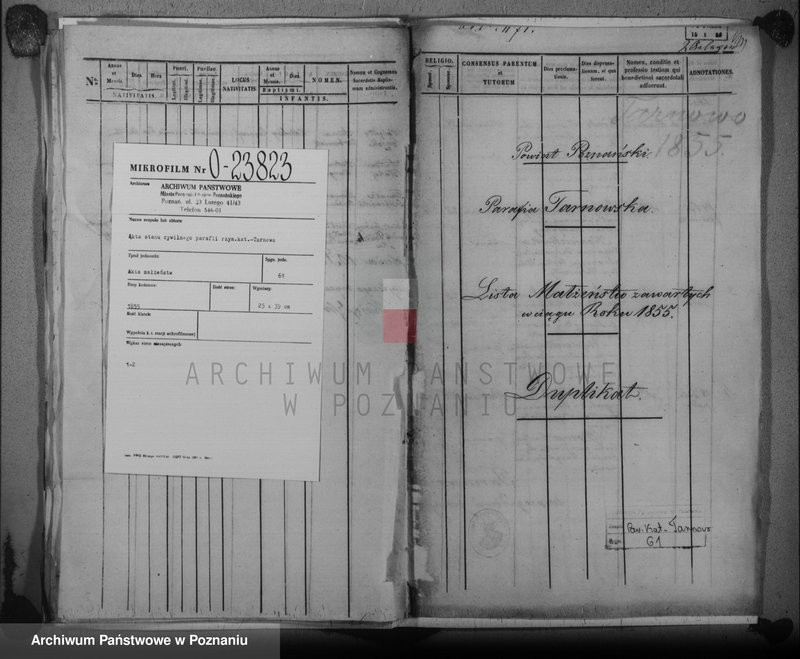 Nº
Annus et Mensis.
Dies
Hora
NATIVITATIS.
Pueri.
Legitimi.
Illegitimi.
Puellae.
Legitimae.
Illegitimae.
LOCUS NATIVITATIS.
Annus et Mensis.
Dies.
Baptismi.
NOMEN.
INFANTIS.
Nomen et Cognomen Sacerdotis Baptismum administrantis.
MIKROFILM Nr 0-23823
Archiwum
ARCHIWUM PAŃSTWOWE
Miasta Poznania i Wojew. Poznańskiego
Poznań ul. 23 Lutego 41/43
Telefon 546-01
Nazwa zespołu lub zbioru:
Akta stanu cywilnego parafii rzym.kat.-Tarnowo
Tytuł jednostki:
Sygn. jedn.
Akta małżeństw
61
Daty końcowe:
Ilość stron:
Wymiary:
1855
25 x 39 cm
Ilość klatek:
Wypełnia k. i. stacji mikrofilmowej
Wykaz stron nieczytelnych:
1-2
RELIGIO.
Sponsi.
Sponsae.
CONSENSUS PARENTUM
et
TUTORUM
Dies proclamationis.
Dies dispensationum, si quae fuerunt.
Nomen, conditio et professio testium qui benedictioni sacerdotali adfuerunt.
ADNOTATIONES.
Tarnowo
1855.
Powiat Poznański
Parafia Tarnowska.
Lista Małżeństw zawartych
w ciągu Roku 1855.
Duplikat.
Par. Kat. Tarnowo
61
ARCHIWUM PAŃSTWOWE
W POZNANIU
Archiwum Państwowe w Poznaniu